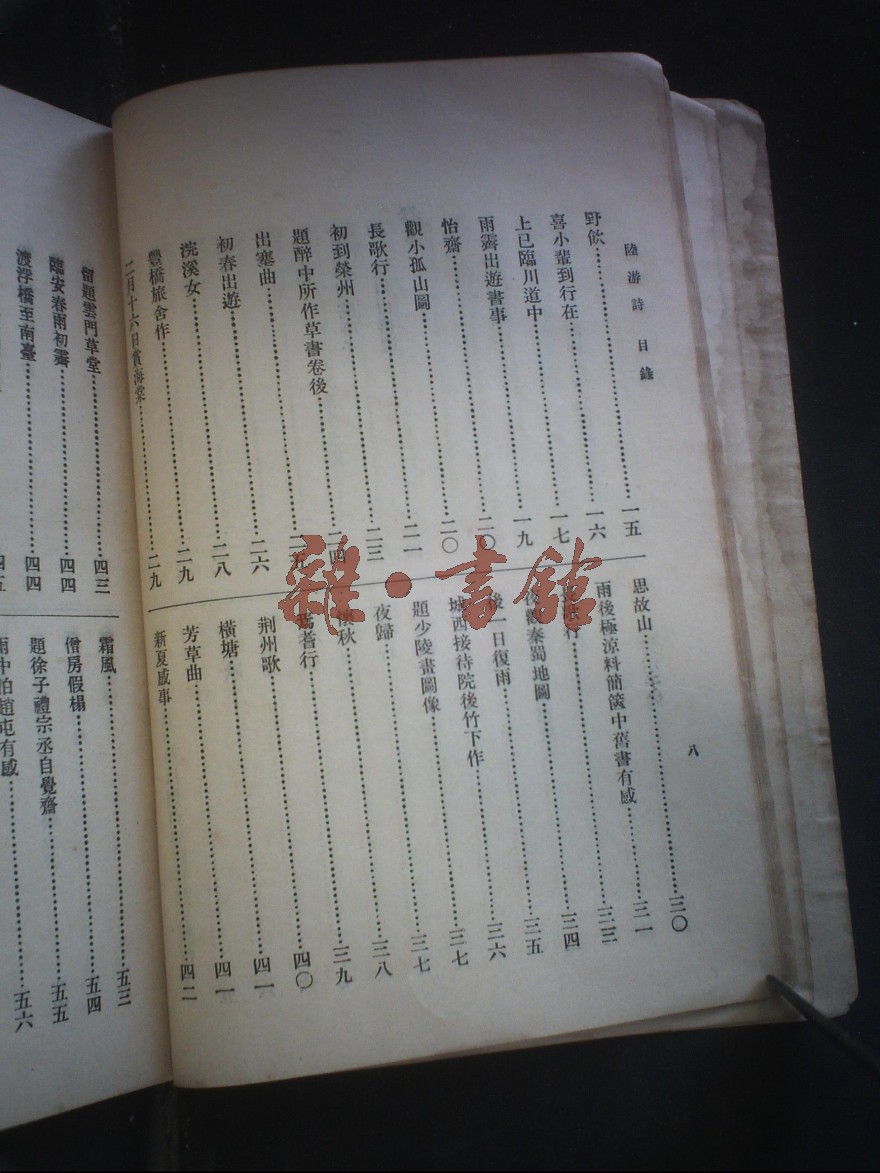 陸游詩 目錄
八
野飲……一五
喜小輩到行在……一六
上巳臨川道中……一七
雨霽出遊書事……一九
怡齋……二〇
觀小孤山圖……二〇
長歌行……二一
初到榮州……二三
題醉中所作草書卷後……二四
出塞曲……二五
初春出遊……二六
浣溪女……二八
豐橋旅舍作……二九
二月十六日賞海棠……二九
思故山……三〇
雨後極涼料簡篋中舊書有感……三一
行……三三
觀秦蜀地圖……三四
後一日復雨……三五
城西接待院後竹下作……三六
題少陵畫圖像……三七
夜歸……三七
秋……三八
行……三九
荆州歌……四〇
橫塘……四一
芳草曲……四一
新夏感事……四二
留題雲門草堂……四三
臨安春雨初霽……四四
渡浮橋至南臺……四四
四五
霜風……五三
僧房假榻……五四
題徐子禮宗丞自覺齋……五五
雨中泊趙屯有感……五六
雜·書館